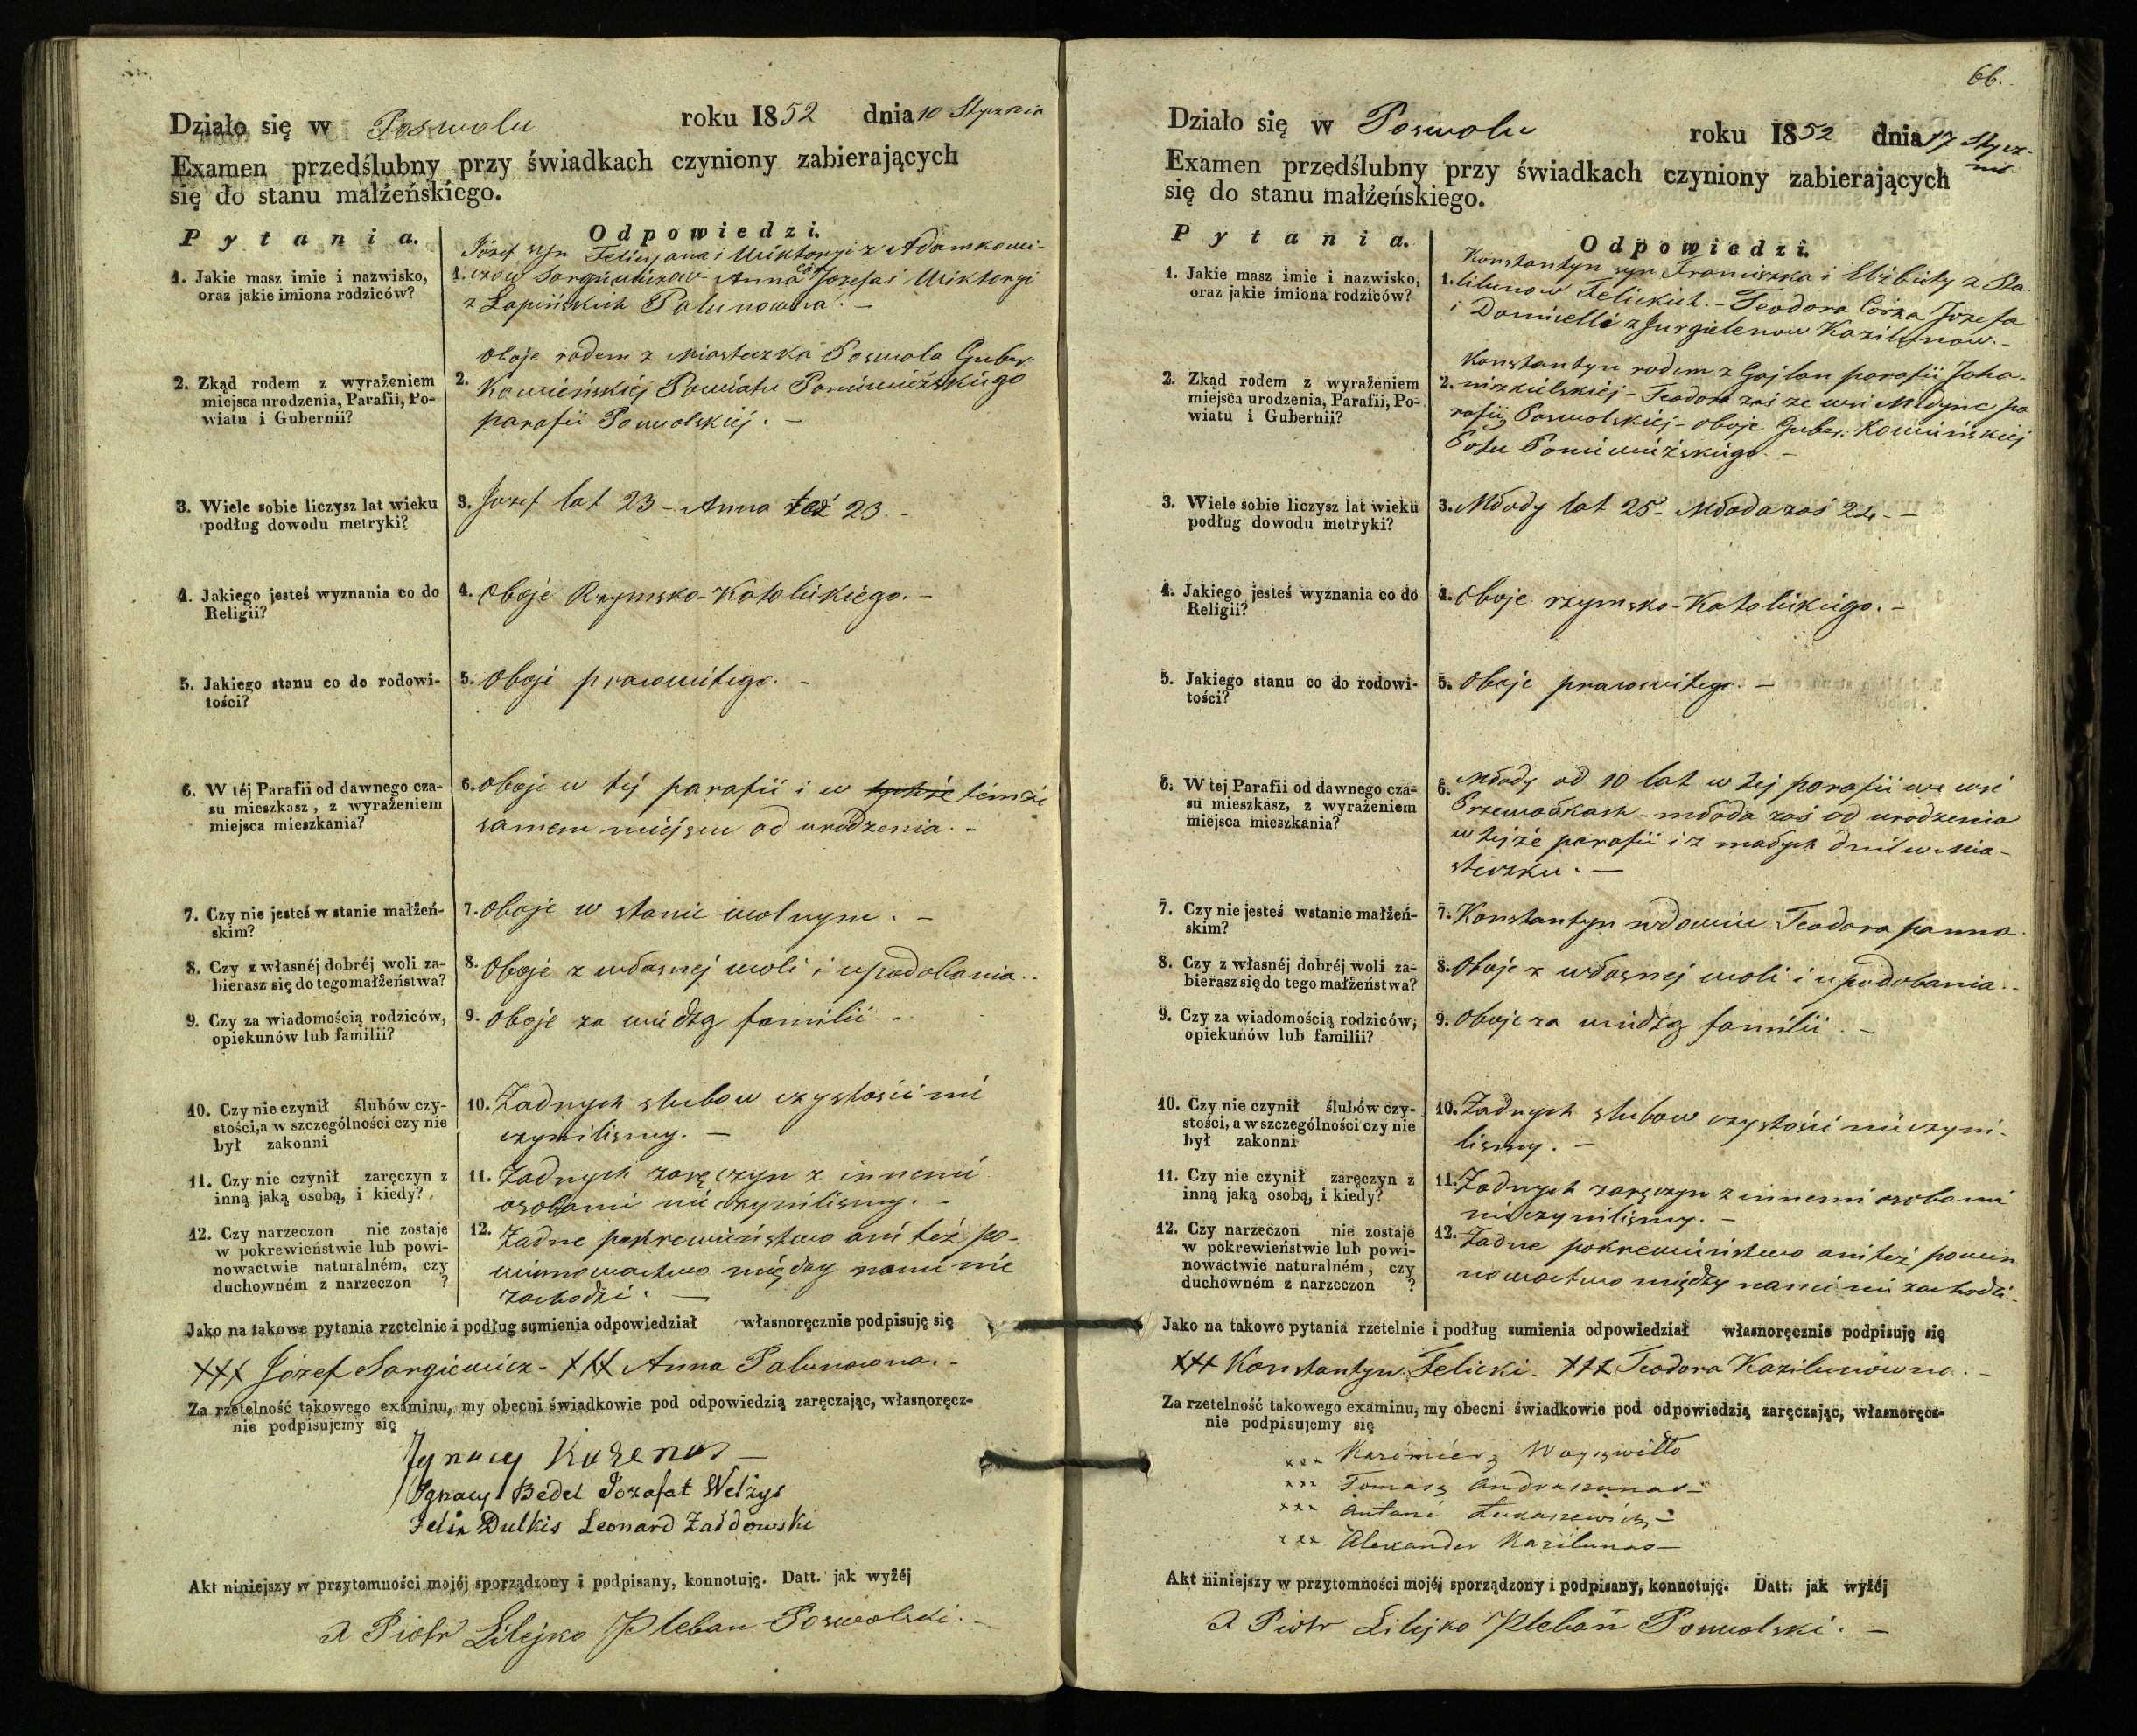 Działo się w Poswolu roku 1852 dnia 10 Stycznia
Examen przedślubny przy świadkach czyniony zabierających
się do stanu małżeńskiego.
Pytania. Odpowiedzi.
1. Jakie masz imie i nazwisko,
oraz jakie imiona rodziców?
Józef syn Felicyana i Wiktoryi z Adamkowi-
1. czow Sargiewiczow Anna cór. Jozefa i Wiktoryi
z Łapińskich Palunowna. –
2. Zkąd rodem z wyrażeniem
miejsca urodzenia, Parafii, Po-
wiatu i Gubernii?
Oboje rodem z Miasteczka Poswola Guber.
2. Kowieńskiéj Powiatu Poniewiéżskiego
parafii Poswolskiéj. –
3. Wiele sobie liczysz lat wieku
podług dowodu metryki?
3. Jozef lat 23 – Anna też 23. –
4. Jakiego jesteś wyznania co do
Religii?
4. Oboje Rzymsko-Katolickiego. –
5. Jakiego stanu co do rodowi-
tości?
5. Oboje prawowitego. –
6. W téj Parafii od dawnego cza-
su mieszkasz, z wyrażeniem
miejsca mieszkania?
6. Oboje w téj parafii i w témże
samem miejscu od urodzenia. –
7. Czy nie jesteś w stanie małżeń-
skim?
7. Oboje w stanie wolnym. –
8. Czy z własnéj dobréj woli za-
bierasz się do tego małżeństwa?
8. Oboje z własnej woli i upodobania. –
9. Czy za wiadomością rodziców,
opiekunów lub familii?
9. Oboje za wiedzą familii. –
10. Czy nie czynił ślubów czy-
stości, a w szczególności czy nie
był zakonni
10. Żadnych slubow czystości nie
czynilismy. –
11. Czy nie czynił zaręczyn z
inną jaką osobą, i kiedy?
11. Żadnych zaręczyn z innemi
osobami nie czynilismy. –
12. Czy narzeczon nie zostaje
w pokrewieństwie lub powi-
nowactwie naturalném, czy
duchowném z narzeczon ?
12. Żadne pokrewieństwo ani też po-
winowactwo między nami nie
zachodzi. –
Jako na takowe pytania rzetelnie i podług sumienia odpowiedział własnoręcznie podpisuję się
XXX Józef Sargiewicz – XXX Anna Palunowna. –
Za rzetelność takowego examinu, my obecni świadkowie pod odpowiedzią zaręczając, własnoręcz-
nie podpisujemy się
Ignacy Kurenas –
Ignacy Bedel Jozafat Welżys
Felix Dulkis Leonard Żaddowski
Akt niniejszy w przytomności mojéj sporządzony i podpisany, konnotuję. Datt. jak wyżéj
X Piotr Lilejko Pleban Poswolski. –
66.
Działo się w Poswolu roku 1852 dnia 17 Stycz-
nia
Examen przedślubny przy świadkach czyniony zabierających
się do stanu małżeńskiego.
Pytania. Odpowiedzi.
1. Jakie masz imie i nazwisko,
oraz jakie imiona rodziców?
Konstantyn syn Franciszka i Elżbiety z Sta-
1. lilunow Felickich. – Teodora Córka Jozefa
i Domicelli z Jurgielenow Kazilunow. –
2. Zkąd rodem z wyrażeniem
miejsca urodzenia, Parafii, Po-
wiatu i Gubernii?
Konstantyn rodem z Gajlan parafii Joha-
2. niszkielskiéj – Teodora zaś ze wsi Medyne pa
rafii Poswolskiéj – oboje Guber. Kowieńskiej
Potu Poniewiéżskiego. –
3. Wiele sobie liczysz lat wieku
podług dowodu metryki?
3. Młody lat 25 – Młoda zaś 24 –
4. Jakiego jesteś wyznania co do
Religii?
4. Oboje rzymsko-Katolickiego. –
5. Jakiego stanu co do rodowi-
tości?
5. Oboje prawowitego. –
6. W tej Parafii od dawnego cza-
su mieszkasz, z wyrażeniem
miejsca mieszkania?
6. Młody od 10 lat w téj parafii we wsi
Przewałkach – młoda zaś od urodzenia
w tejże parafii i z małych dni w Mia-
steczku. –
7. Czy nie jesteś wstanie małżeń-
skim?
7. Konstantyn wdowiec – Teodora panna.
8. Czy z własnéj dobréj woli za-
bierasz się do tego małżeństwa?
8. Oboje z własnej woli i upodobania. –
9. Czy za wiadomością rodziców,
opiekunów lub familii?
9. Oboje za wiedzą familii. –
10. Czy nie czynił ślubów czy-
stości, a w szczególności czy nie
był zakonni
10. Żadnych slubow czystości nie czyni-
lismy. –
11. Czy nie czynił zaręczyn z
inną jaką osobą, i kiedy?
11. Żadnych zaręczyn z innemi osobami
nie czynilismy. –
12. Czy narzeczon nie zostaje
w pokrewieństwie lub powi-
nowactwie naturalném, czy
duchowném z narzeczon ?
12. Żadne pokrewieństwo ani też powin
nowactwo między nami nie zachodzi. –
Jako na takowe pytania rzetelnie i podług sumienia odpowiedział własnoręcznie podpisuję się
XXX Konstantyn Felicki. XXX Teodora Kazilunówna. –
Za rzetelność takowego examinu, my obecni świadkowie pod odpowiedzią zaręczając, własnoręcz-
nie podpisujemy się
xxx Kazimierz Woyszwiłło
xxx Tomasz Andraszunas –
xxx Antoni Łukaszewicz –
xxx Alexander Kazilunas –
Akt niniejszy w przytomności mojéj sporządzony i podpisany, konnotuję. Datt. jak wyżéj
X Piotr Lilejko Pleban Poswolski. –